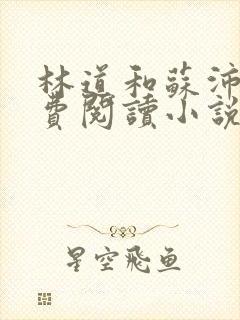 林道和蘇沛
費閱讀小說
星空飛鱼